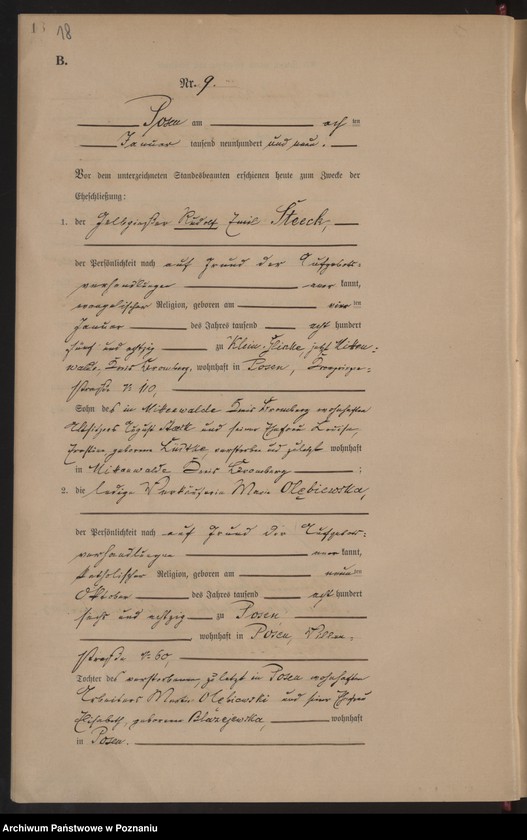 18
B.
Nr. 9.
Posen am acht ten
Januar tausend neunhundert und neun.
Vor dem unterzeichneten Standesbeamten erschienen heute zum Zwecke der
Eheschließung:
1. der Gelbgießer Rudolf Emil Steeck,
der Persönlichkeit nach auf Grund der Aufgebots-
verhandlungen aner kannt,
evangelischer Religion, geboren am vier ten
Januar des Jahres tausend acht hundert
fünf und achtzig zu Klein, jetzt
walde, Kreis Bromberg, wohnhaft in Posen,
straße
Sohn des in Kreis Bromberg wohnhaften
August und seiner Ehefrau Luise,
geborene Lüdtke, verstorben und zuletzt wohnhaft
in Kreis Bromberg ;
2. die ledige Verkäuferin Olębiewska,
der Persönlichkeit nach auf Grund der Aufgebots-
verhandlungen aner kannt,
katholischer Religion, geboren am neun ten
Oktober des Jahres tausend acht hundert
sechs und achtzig zu Posen
wohnhaft in Posen,
straße 60,
Tochter des verstorbenen, zuletzt in Posen wohnhaften
Arbeiters Olębiewski und seiner Ehefrau
Elisabeth, geborenen Błażejewska, wohnhaft
in Posen.
Archiwum Państwowe w Poznaniu